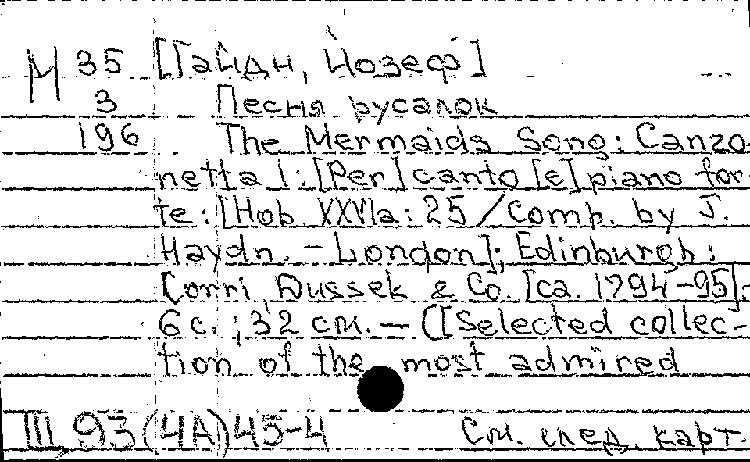 М 35 [Гайдн, Йозеф]
3 Песня русалок
196 The Mermaids Song: Canzo-
netta 1: [Per] canto [e] piano for-
te: [Hob. XXVIa: 25 / Comp. by J.
Haydn. - London]; Edinburgh:
Corri, Dussek & Co. [ca. 1794-95].
6 с.; 32 см. - ([Selected collec-
tion of the most admired
III, 93(4A)45-4 См. след. карт.